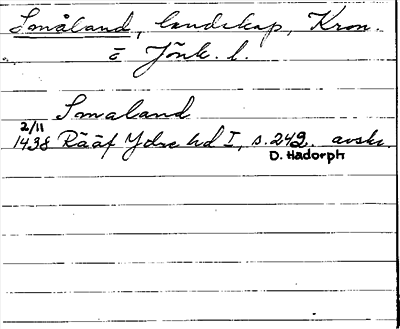 Småland, landskap, Kron.
o Jönk. l.
Smaland
2/11
1438 Rääf Ydre hd I, s. 242. avskr.
D. Hadorph